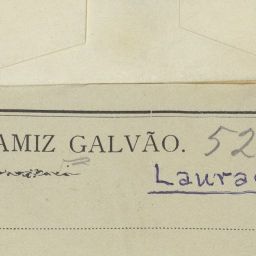 AMIZ GALVÃO. 52
Laura